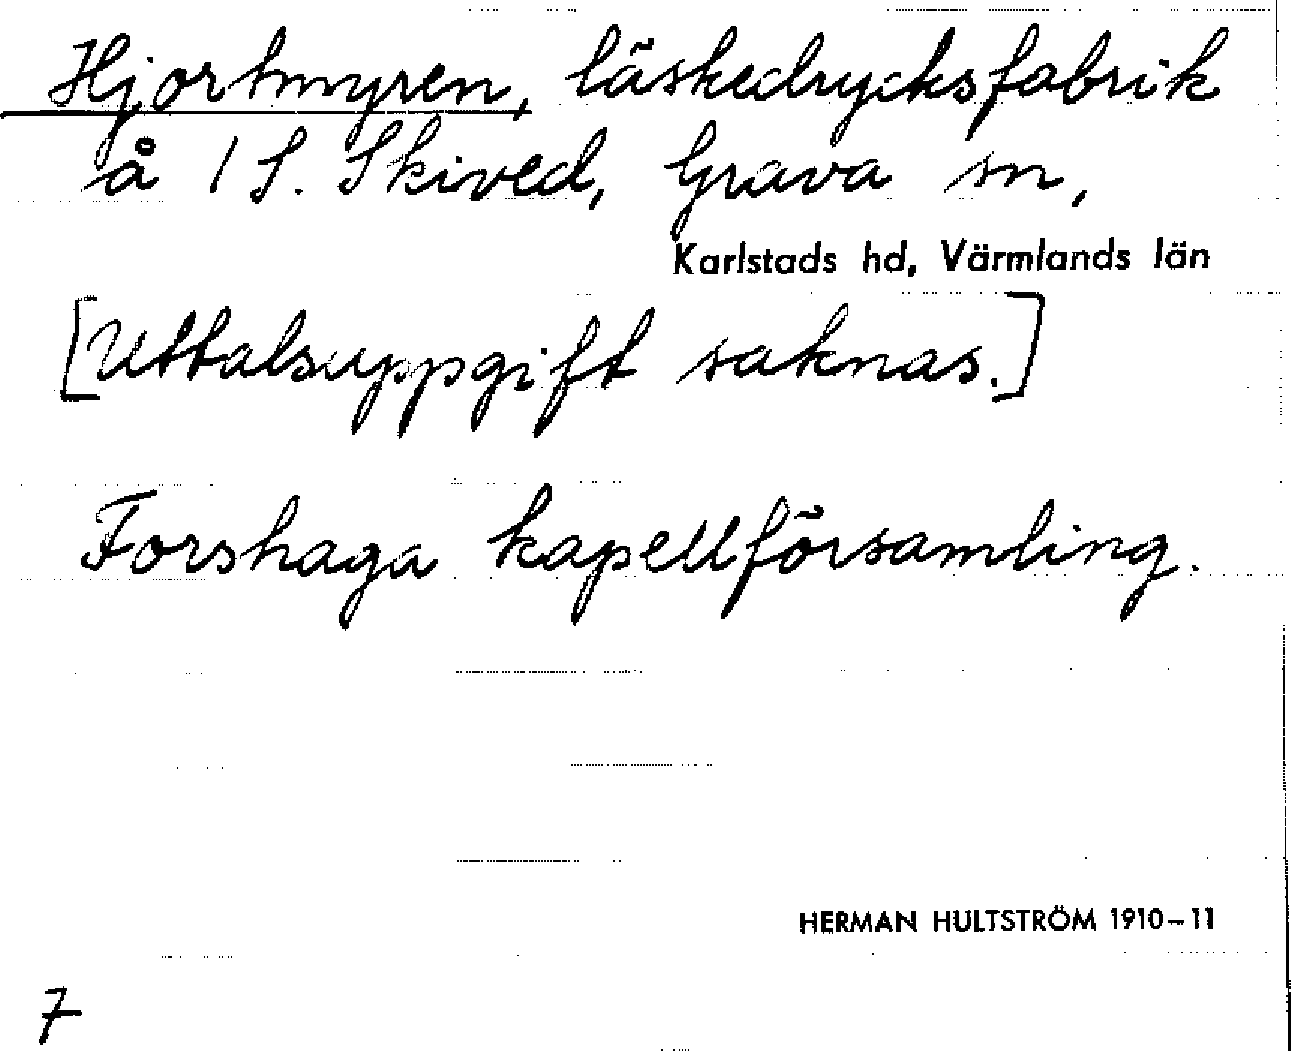 Hjortmyren, läskedrycksfabrik
å 1 S. Skived, Grava sn,
Karlstads hd, Värmlands län
[Uttalsuppgift saknas.]
Forshaga kapellförsamling.
HERMAN HULTSTRÖM 1910–11
7